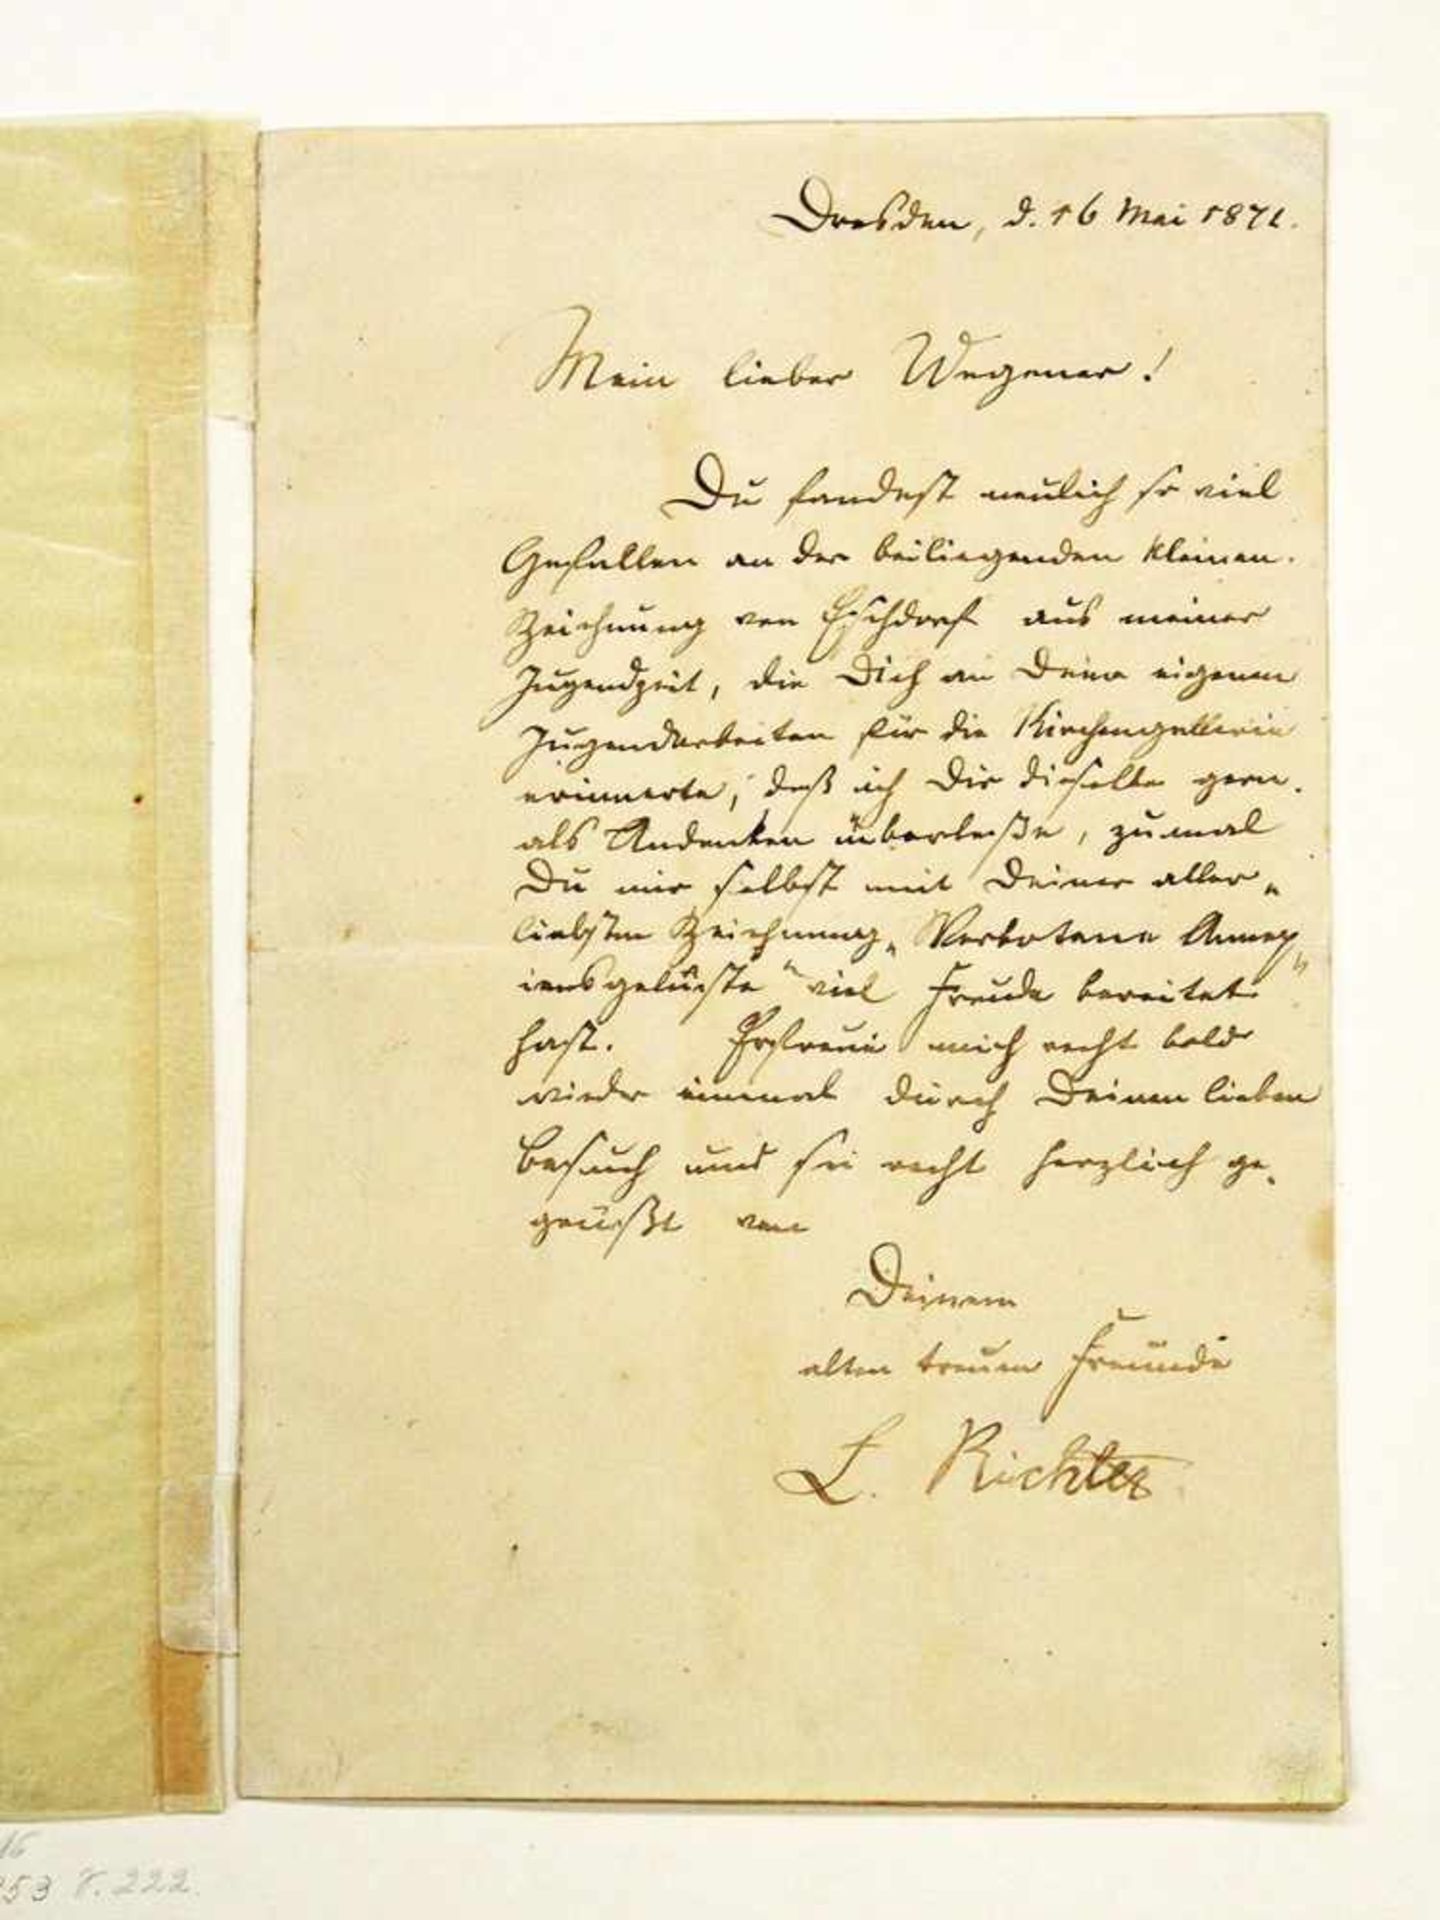 Dresden, d. 16 Mai 1871.
Mein lieber Wegener!
Du fandest neulich so viel
Gefallen an der beiliegenden kleinen
Zeichnung von Eschdorf aus meiner
Jugendzeit, die Dich an Deine eigenen
Jugendarbeiten für die Kirchengallerie
erinnerte, daß ich Dir dieselbe gern
als Andenken überlaße, zumal
Du mir selbst mit Deiner aller-
liebsten Zeichnung „Verbotene Annex-
iensgelüste" viel Freude bereitet
hast. Erfreue mich recht bald
wieder einmal durch Deinen lieben
Besuch und sei recht herzlich ge-
grüßt von
Deinem
alten treuen Freunde
L. Richter
16
53 V. 222.